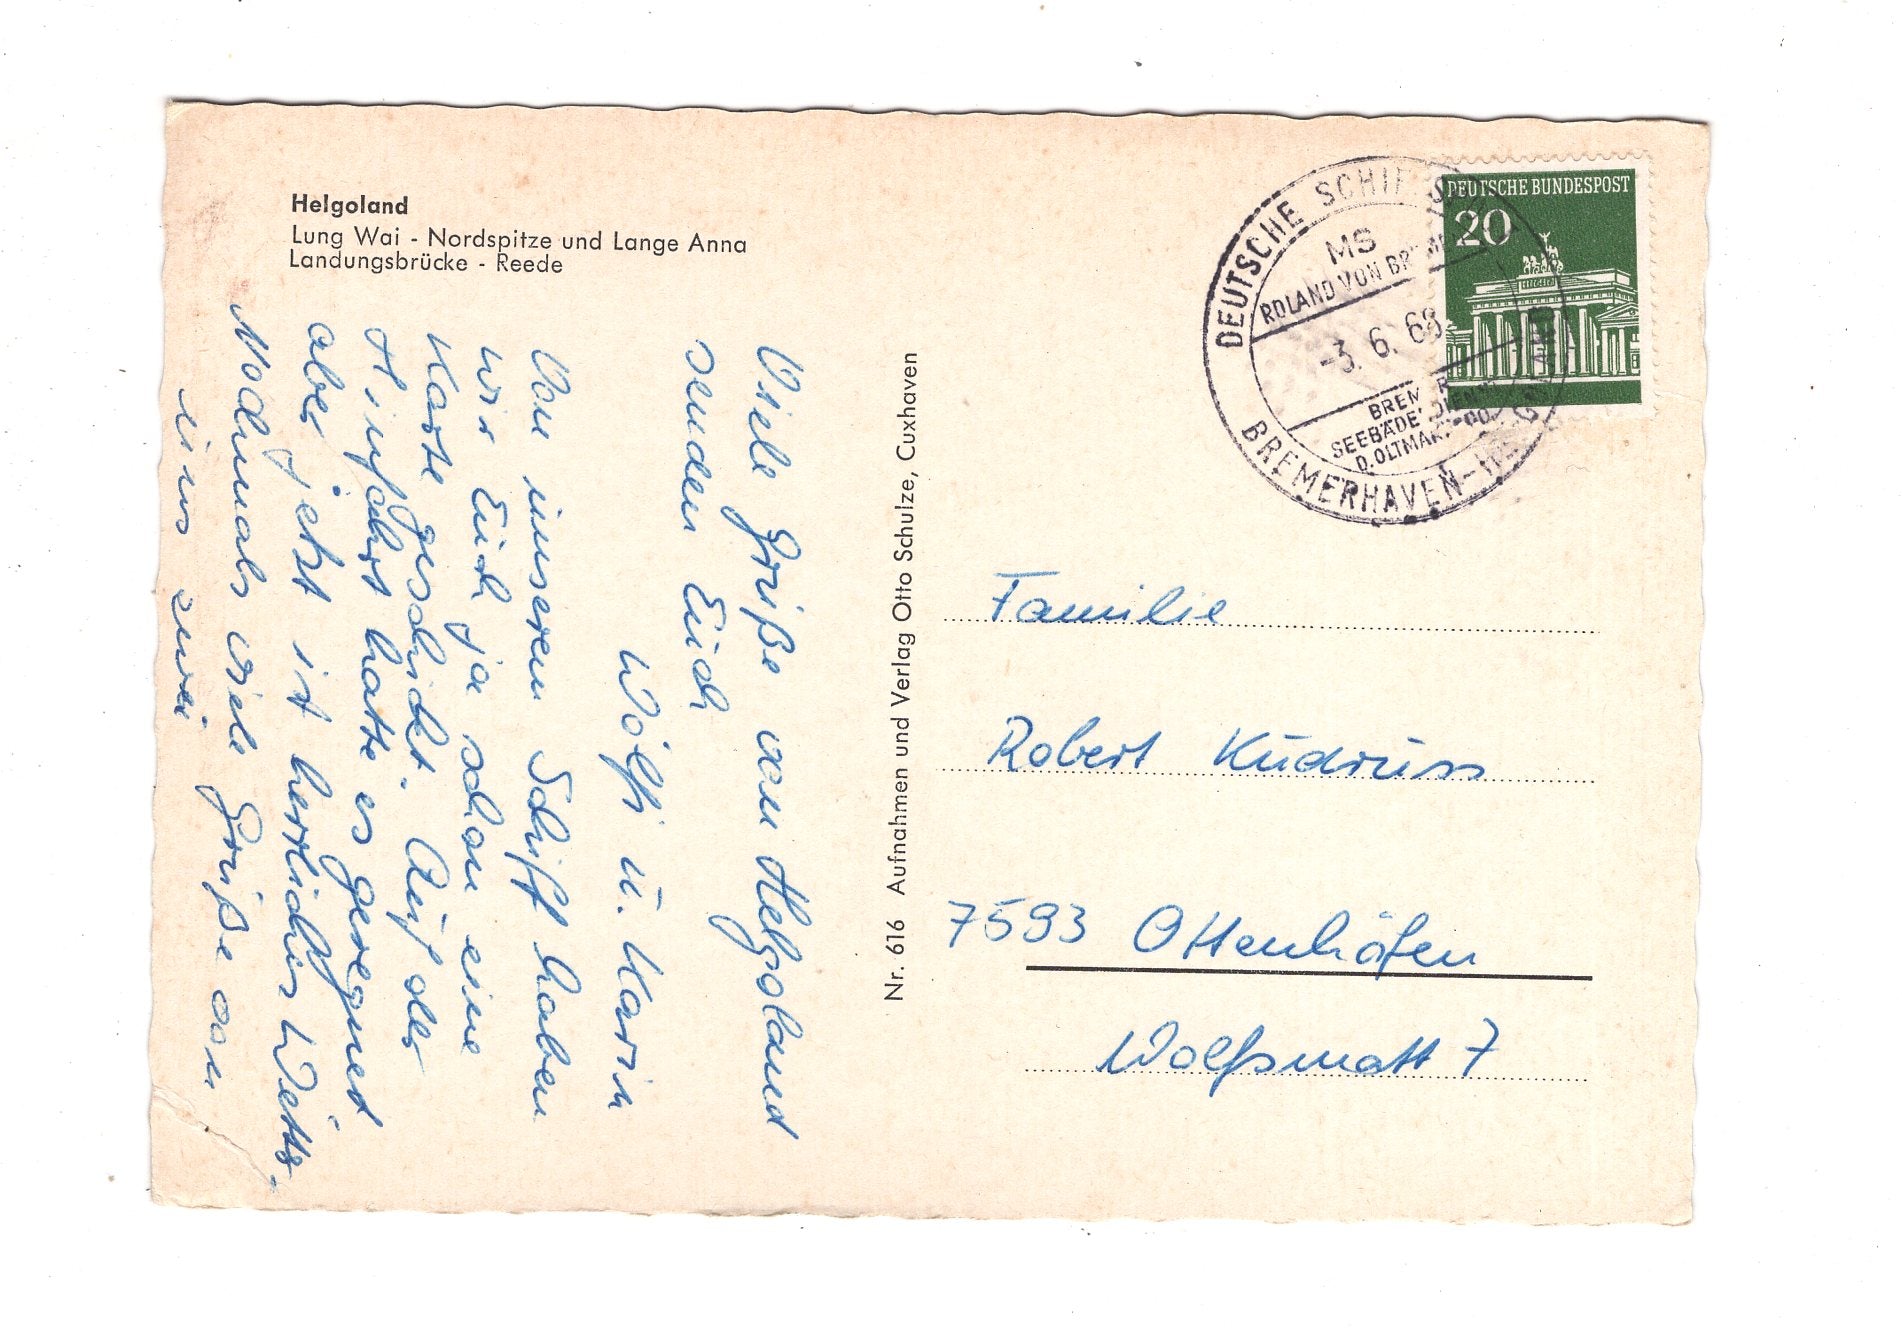 Helgoland
Lung Wai - Nordspitze und Lange Anna
Landungsbrücke - Reede
Viele Grüße von Helgoland
senden Euch
Wolfi u. Karin
Von unserem Schiff haben
wir Euch ja schon eine
Karte geschickt. Auf der
Hinfahrt hatte es geregnet
aber jetzt ist herrliches Wetter.
Nochmals viele Grüße von
uns zwei
Nr. 616 Aufnahmen und Verlag Otto Schulze, Cuxhaven
DEUTSCHE BUNDESPOST
20
DEUTSCHE
MS
ROLAND VON
-3. 6. 68
BREMERHAVEN-
Familie
Robert Kudruss
7593 Ottenhöfen
Wolfsmatt 7